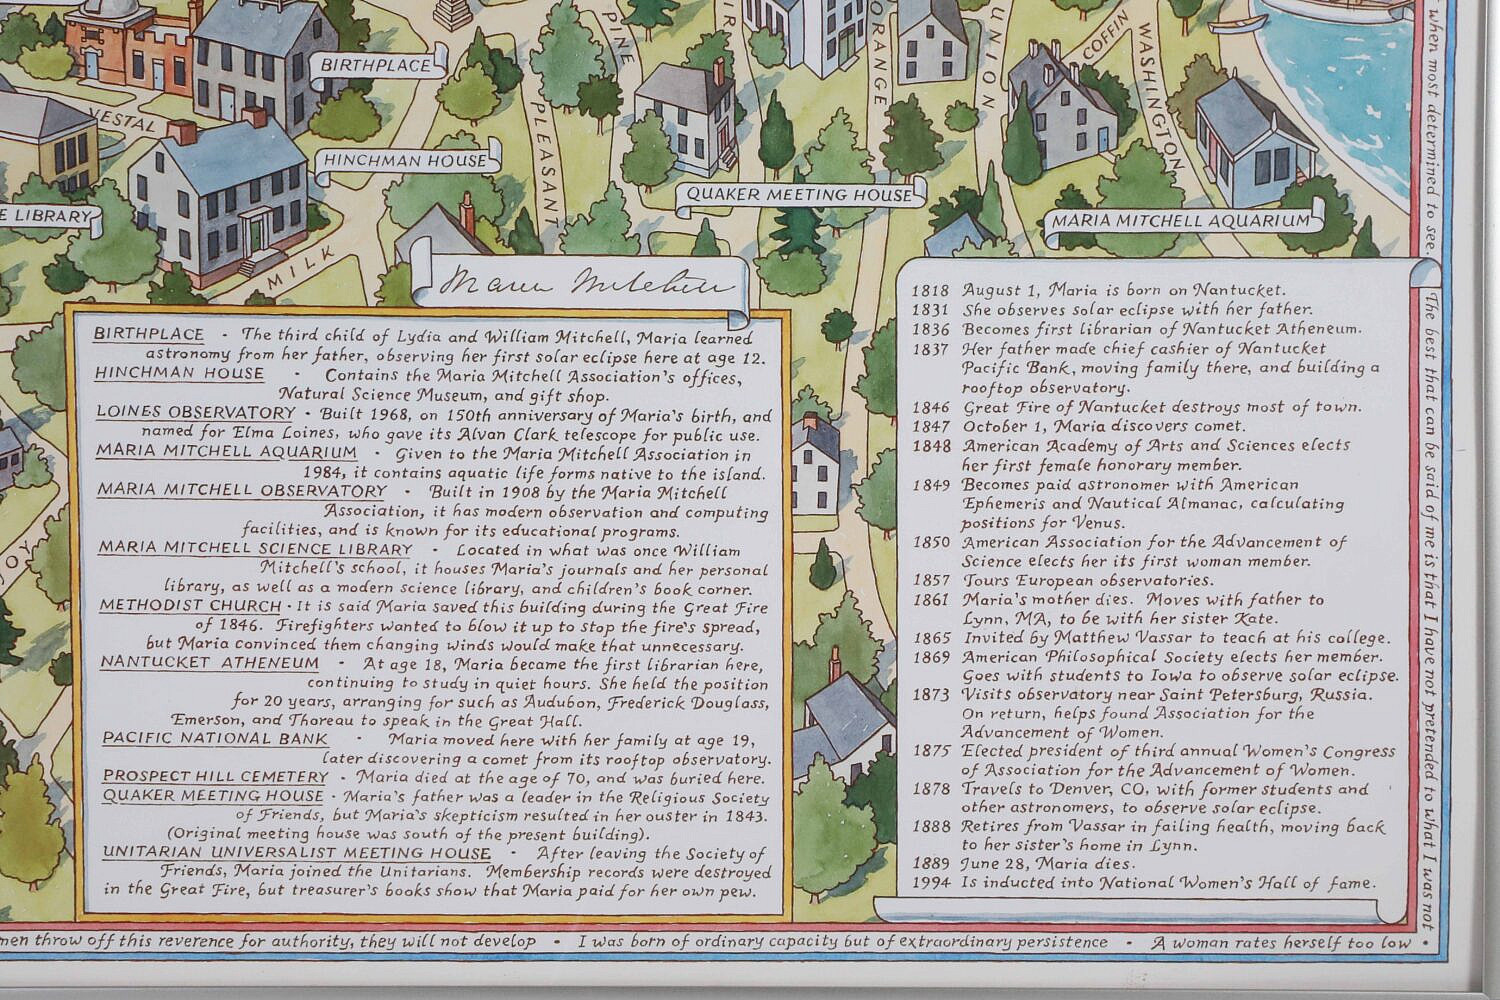 BIRTHPLACE
VESTAL
HINCHMAN HOUSE
E LIBRARY
MILK
PINE
PLEASANT
ORANGE
UNION
COFFIN
WASHINGTON
QUAKER MEETING HOUSE
MARIA MITCHELL AQUARIUM
JOY
Maria Mitchell
BIRTHPLACE • The third child of Lydia and William Mitchell, Maria learned
astronomy from her father, observing her first solar eclipse here at age 12.
HINCHMAN HOUSE • Contains the Maria Mitchell Association's offices,
Natural Science Museum, and gift shop.
LOINES OBSERVATORY • Built 1968, on 150th anniversary of Maria's birth, and
named for Elma Loines, who gave its Alvan Clark telescope for public use.
MARIA MITCHELL AQUARIUM • Given to the Maria Mitchell Association in
1984, it contains aquatic life forms native to the island.
MARIA MITCHELL OBSERVATORY • Built in 1908 by the Maria Mitchell
Association, it has modern observation and computing
facilities, and is known for its educational programs.
MARIA MITCHELL SCIENCE LIBRARY • Located in what was once William
Mitchell's school, it houses Maria's journals and her personal
library, as well as a modern science library, and children's book corner.
METHODIST CHURCH • It is said Maria saved this building during the Great Fire
of 1846. Firefighters wanted to blow it up to stop the fire's spread,
but Maria convinced them changing winds would make that unnecessary.
NANTUCKET ATHENEUM • At age 18, Maria became the first librarian here,
continuing to study in quiet hours. She held the position
for 20 years, arranging for such as Audubon, Frederick Douglass,
Emerson, and Thoreau to speak in the Great Hall.
PACIFIC NATIONAL BANK • Maria moved here with her family at age 19,
later discovering a comet from its rooftop observatory.
PROSPECT HILL CEMETERY • Maria died at the age of 70, and was buried here.
QUAKER MEETING HOUSE • Maria's father was a leader in the Religious Society
of Friends, but Maria's skepticism resulted in her ouster in 1843.
(Original meeting house was south of the present building).
UNITARIAN UNIVERSALIST MEETING HOUSE • After leaving the Society of
Friends, Maria joined the Unitarians. Membership records were destroyed
in the Great Fire, but treasurer's books show that Maria paid for her own pew.
1818 August 1, Maria is born on Nantucket.
1831 She observes solar eclipse with her father.
1836 Becomes first librarian of Nantucket Atheneum.
1837 Her father made chief cashier of Nantucket
Pacific Bank, moving family there, and building a
rooftop observatory.
1846 Great Fire of Nantucket destroys most of town.
1847 October 1, Maria discovers comet.
1848 American Academy of Arts and Sciences elects
her first female honorary member.
1849 Becomes paid astronomer with American
Ephemeris and Nautical Almanac, calculating
positions for Venus.
1850 American Association for the Advancement of
Science elects her its first woman member.
1857 Tours European observatories.
1861 Maria's mother dies. Moves with father to
Lynn, MA, to be with her sister Kate.
1865 Invited by Matthew Vassar to teach at his college.
1869 American Philosophical Society elects her member.
Goes with students to Iowa to observe solar eclipse.
1873 Visits observatory near Saint Petersburg, Russia.
On return, helps found Association for the
Advancement of Women.
1875 Elected president of third annual Women's Congress
of Association for the Advancement of Women.
1878 Travels to Denver, CO, with former students and
other astronomers, to observe solar eclipse.
1888 Retires from Vassar in failing health, moving back
to her sister's home in Lynn.
1889 June 28, Maria dies.
1994 Is inducted into National Women's Hall of fame.
when most determined to see. The best that can be said of me is that I have not pretended to what I was not
men throw off this reverence for authority, they will not develop • I was born of ordinary capacity but of extraordinary persistence • A woman rates herself too low •